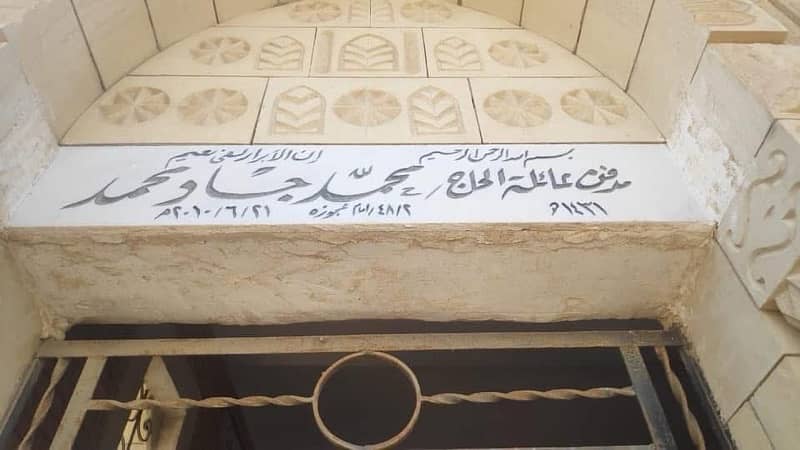 بسم الله الرحمن الرحيم إن الأبرار لفي نعيم
مدفن عائلة الحاج / محمد جاد محمد
١٤٣١هـ ٤٨/٢ ٢٠١٠/٦/٢١م